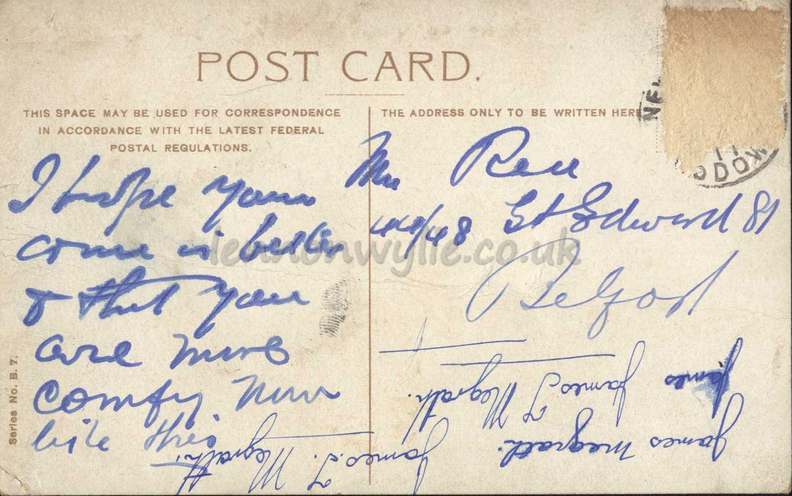 POST CARD.
THIS SPACE MAY BE USED FOR CORRESPONDENCE
IN ACCORDANCE WITH THE LATEST FEDERAL
POSTAL REGULATIONS.
THE ADDRESS ONLY TO BE WRITTEN HERE
I hope your
is better
& that you
are more
comfy now
like this
St Edward St
Belfast
James
James T Megrath.
James Megrath.
James. T. Megrath.
Series No. B. 7.
lennonwylie.co.uk